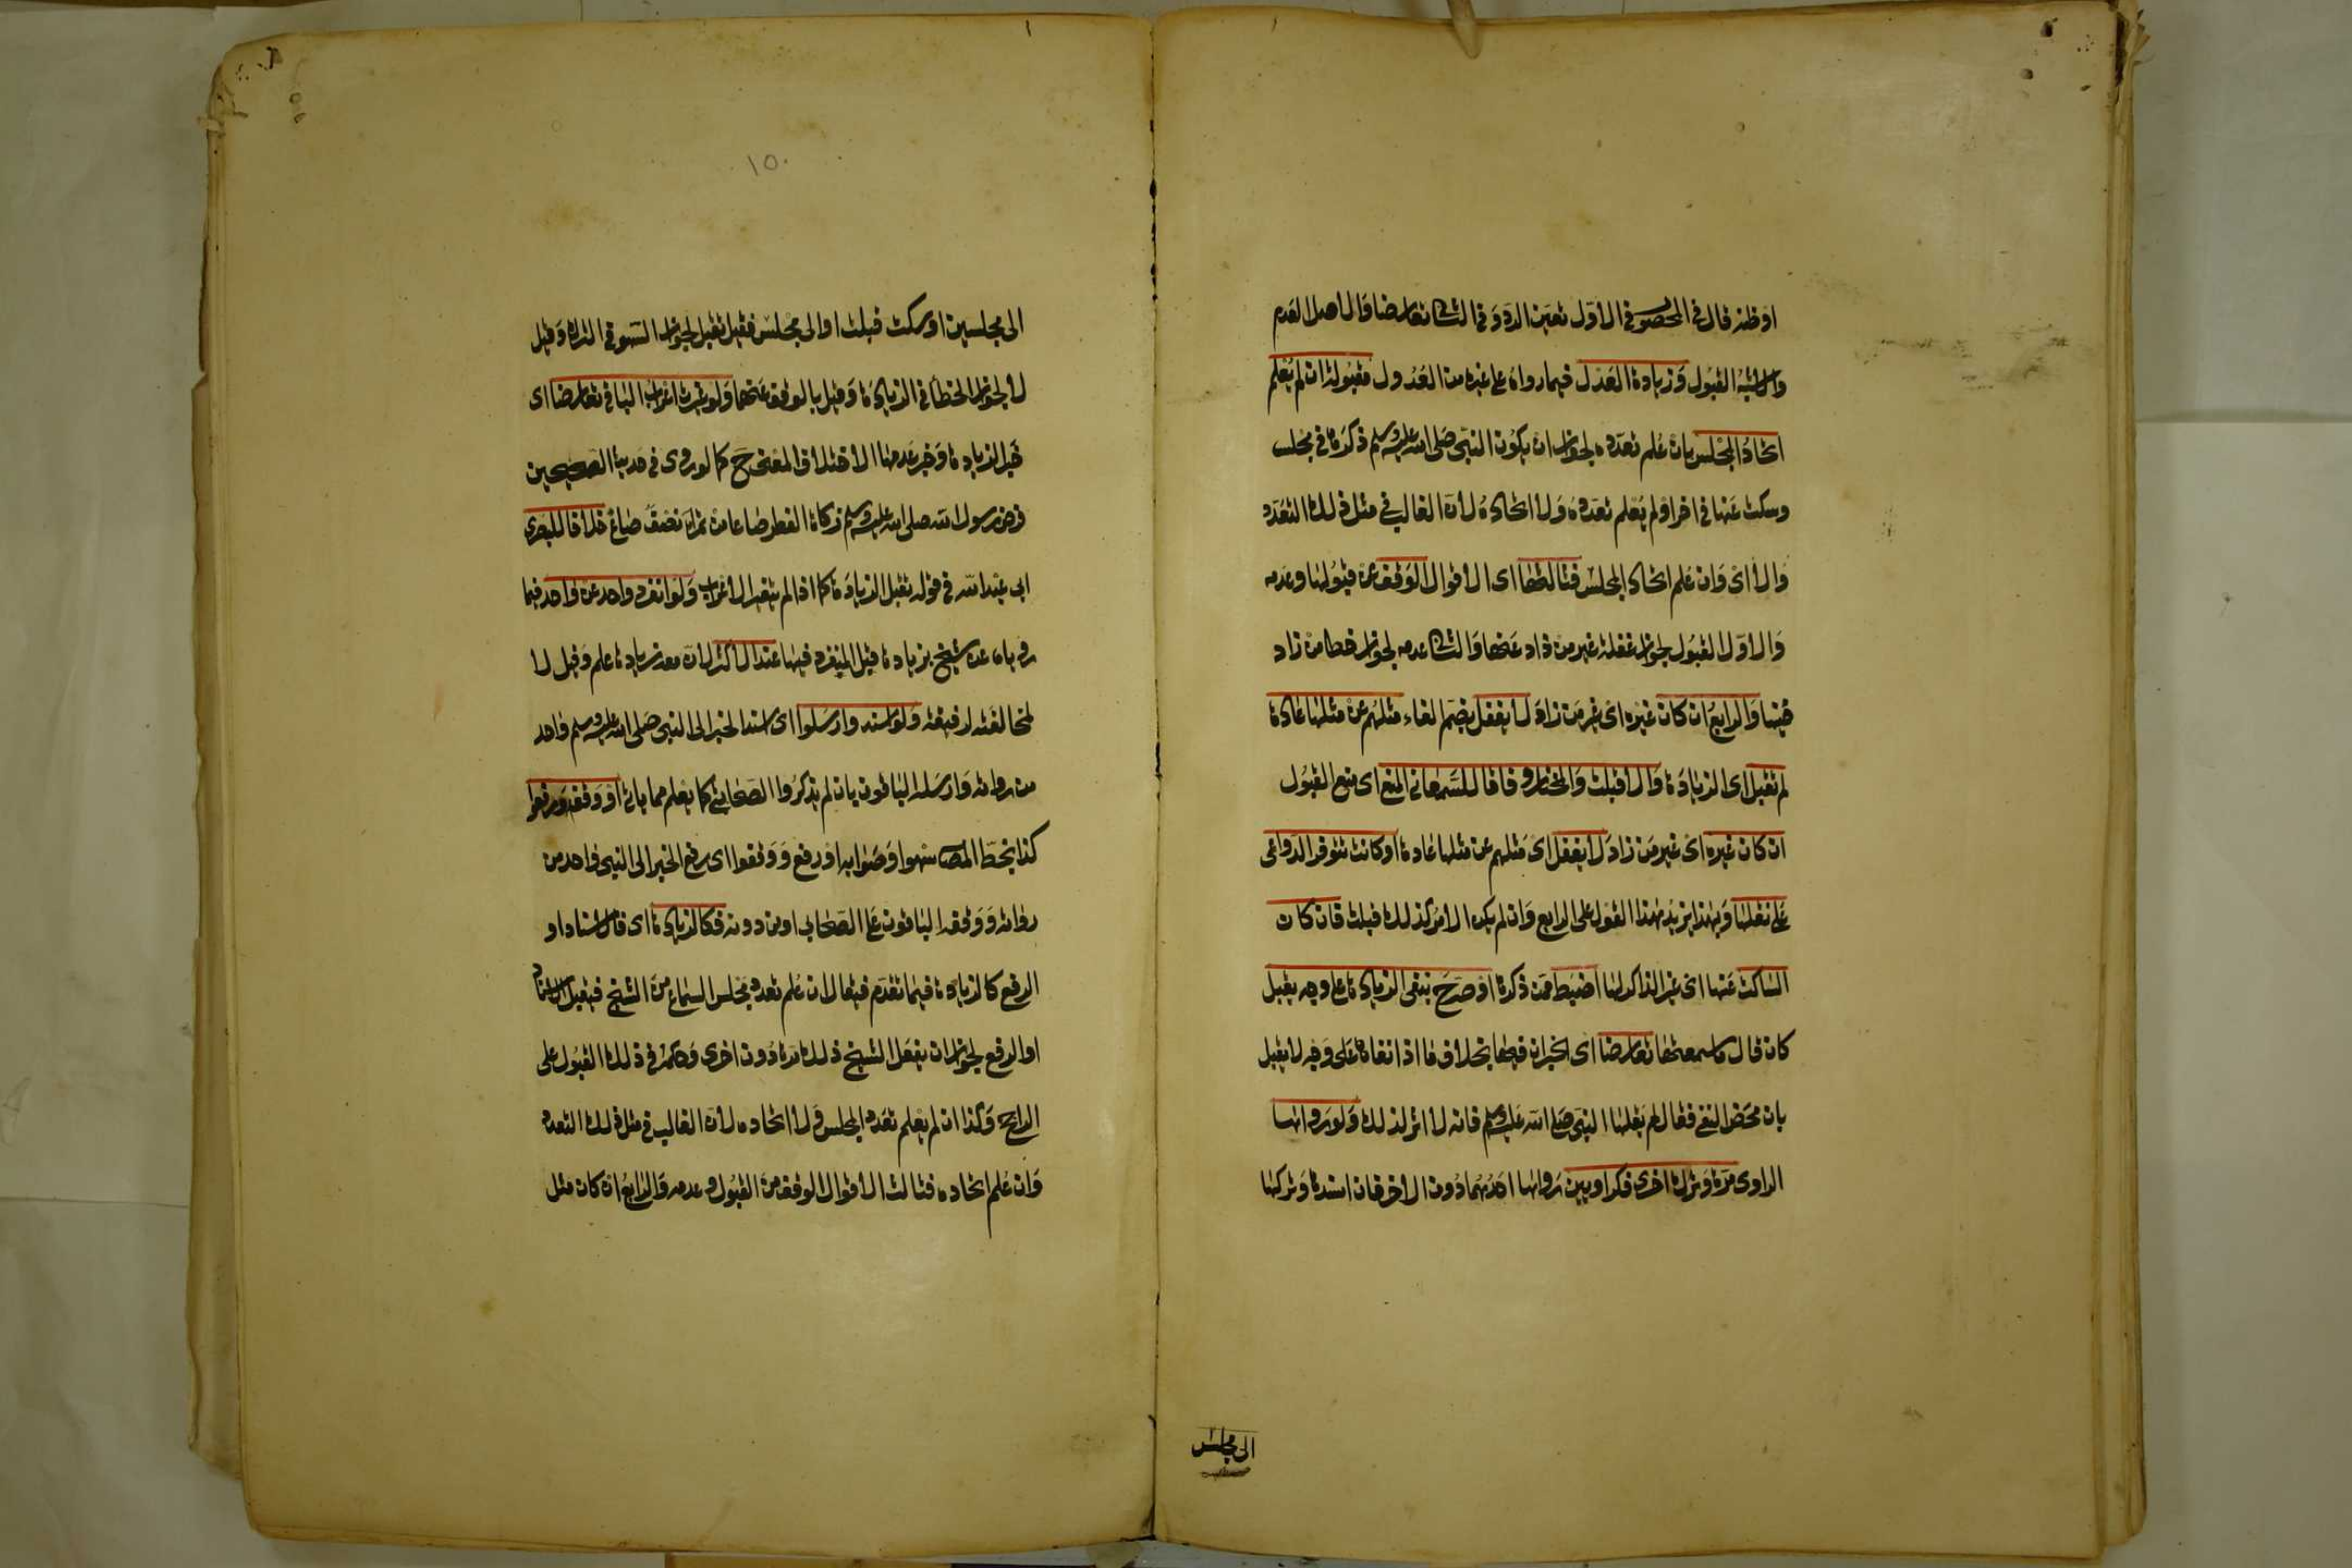 او ظنه قال في المحصول في الاول تعين الرد وفي الثاني تعارضا والاصل العدم
والاشبه القبول وزيادة العدل فيما رواه على غيره من العدول مقبولة ان لم يعلم
اتحاد المجلس بان علم تعدده لجواز ان يكون النبي صلى الله عليه وسلم ذكرها في مجلس
وسكت عنها في اخر او لم يعلم تعدده ولا اتحاده لان الغالب في مثل ذلك التعدد
والا اي وان علم اتحاد المجلس فثالثها اي الاقوال الوقف عن قبولها وعدمه
والاول القبول لجواز غفلة غير من زاد عنها والثاني عدمه لجواز خطا من زاد
فيها والرابع ان كان غيره اي غير من زاد لا يغفل بضم الفاء مثلهم عن مثلها عادة
لم تقبل اي الزيادة والا قبلت والمختار وفاقا للسمعاني المنع اي منع القبول
ان كان غيره اي غير من زاد لا يغفل اي مثلهم عن مثلها عادة او كانت تتوفر الدواعي
على نقلها وبهذا يزيد هذا القول على الرابع وان لم يكن الامر كذلك قبلت فان كان
الساكت عنها اي غير الذاكر لها اضبط ممن ذكرها او صرح بنفي الزيادة على وجه يقبل
كان قال ما سمعتها تعارضا اي الخبران فيها بخلاف ما اذا نفاها على وجه لا يقبل
بان محض النفي فقال لم يقلها النبي صلى الله عليه وسلم فانه لا اثر لذلك ولو رواها
الراوي مرة وترك اخرى فكراويين رواها احدهما دون الاخر فان اسندها وتركها
الى مجلس
١٥٠
الى مجلسين او سكت قبلت او الى مجلس فقيل تقبل لجواز السهو في الترك وقيل
لا لجواز الخطأ في الزيادة وقيل بالوقف عنهما ولو غيرت اعراب الباقي تعارضا اي
خبر الزيادة وخبر عدمها لاختلاف المعنى ح كما لو روى في حديث الصحيحين
فرض رسول الله صلى الله عليه وسلم زكاة الفطر صاعا من تمر الخ نصف صاع خلافا للبصري
ابي عبد الله في قوله تقبل الزيادة كما اذا لم يتغير الاعراب ولو انفرد واحد عن واحد فيما
روياه عن شيخ بزيادة قبل المنفرد فيها عند الاكثر لان معه زيادة علم وقيل لا
لمخالفته لرفيقه ولو اسند وارسلوا اي اسند الخبر الى النبي صلى الله عليه وسلم واحد
من رواته وارسله الباقون بان لم يذكروا الصحابي كما يعلم مما ياتي او وقف ورفعوا
كذا بخط المصنف سهوا وصوابه او رفع ووقفوا اي رفع الخبر الى النبي واحد من
رواته ووقفه الباقون على الصحابي او من دونه فكالزيادة اي فالاسناد او
الرفع كالزيادة فيما تقدم فيقال ان علم تعدد مجلس السماع من الشيخ فيقبل الاسناد
او الرفع لجواز ان يفعل الشيخ ذلك مرة دون اخرى وحكمه في ذلك القبول على
الراجح وكذا ان لم يعلم تعدد المجلس ولا اتحاده لان الغالب في مثل ذلك التعدد
وان علم اتحاده فثالث الاقوال الوقف من القبول وعدمه والرابع ان كان مثل